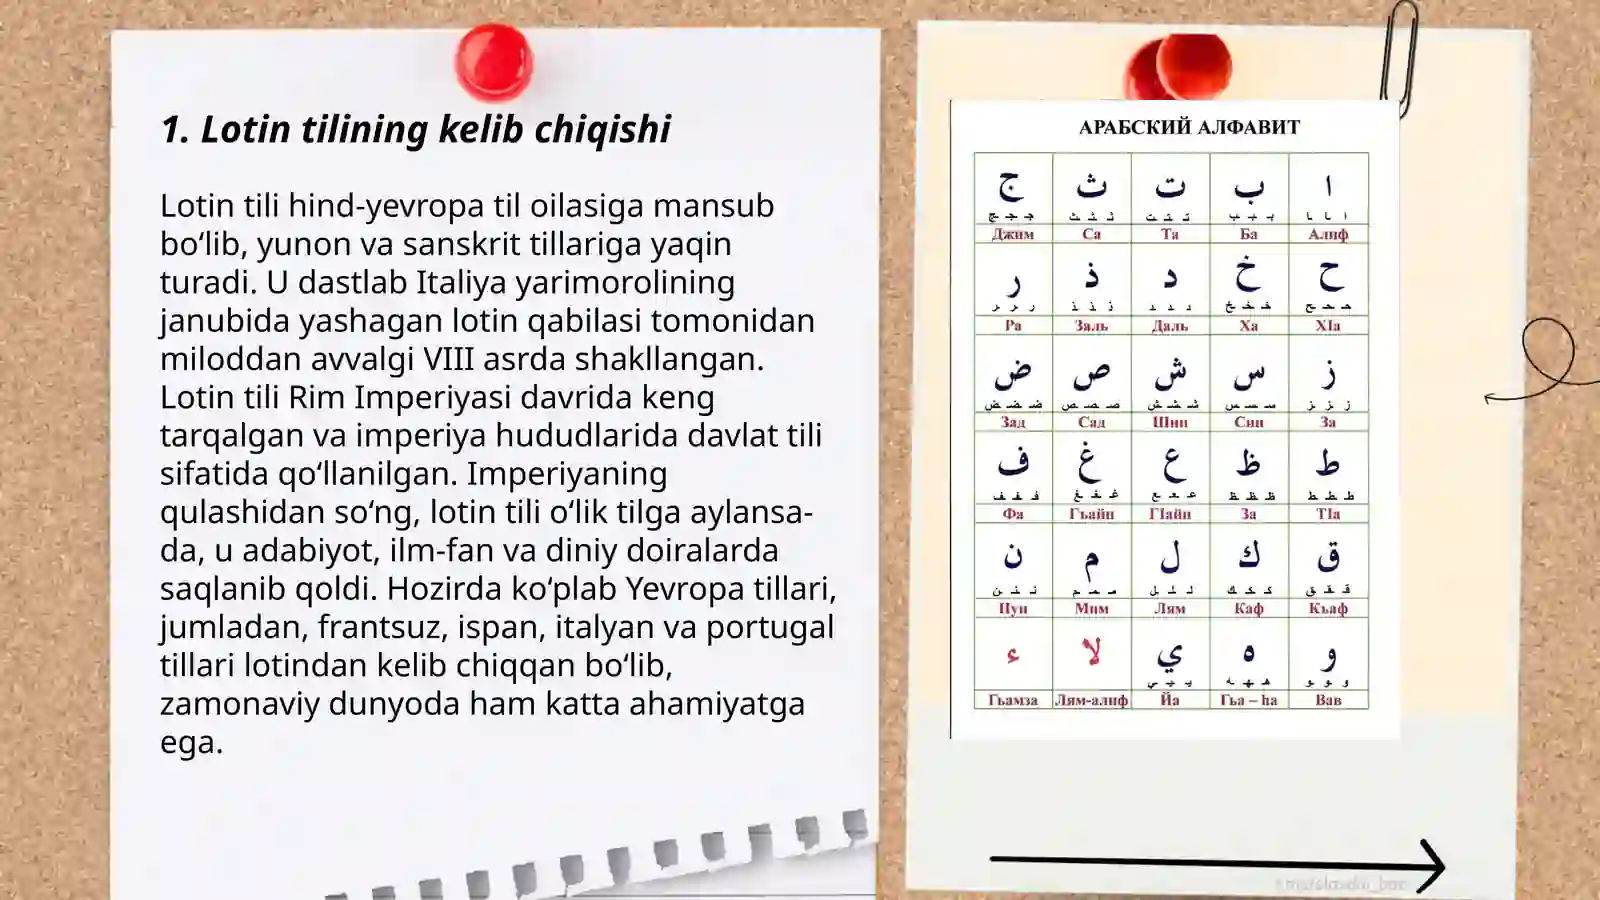 1. Lotin tilining kelib chiqishi
Lotin tili hind-yevropa til oilasiga mansub
bo‘lib, yunon va sanskrit tillariga yaqin
turadi. U dastlab Italiya yarimorolining
janubida yashagan lotin qabilasi tomonidan
miloddan avvalgi VIII asrda shakllangan.
Lotin tili Rim Imperiyasi davrida keng
tarqalgan va imperiya hududlarida davlat tili
sifatida qo‘llanilgan. Imperiyaning
qulashidan so‘ng, lotin tili o‘lik tilga aylansa-
da, u adabiyot, ilm-fan va diniy doiralarda
saqlanib qoldi. Hozirda ko‘plab Yevropa tillari,
jumladan, frantsuz, ispan, italyan va portugal
tillari lotindan kelib chiqqan bo‘lib,
zamonaviy dunyoda ham katta ahamiyatga
ega.
АРАБСКИЙ АЛФАВИТ
ج ث ت ب ا
Джим Са Та Ба Алиф
ر ذ د خ ح
Ра Заль Даль Ха ХIа
ض ص ش س ز
Зад Сад Шин Син За
ف غ ع ظ ط
Фа Гъайн ГIайн За ТIа
ن م ل ك ق
Нун Мим Лям Каф Къаф
ء لا ي ه و
Гьамза Лям-алиф Йа Гьа – ha Вав